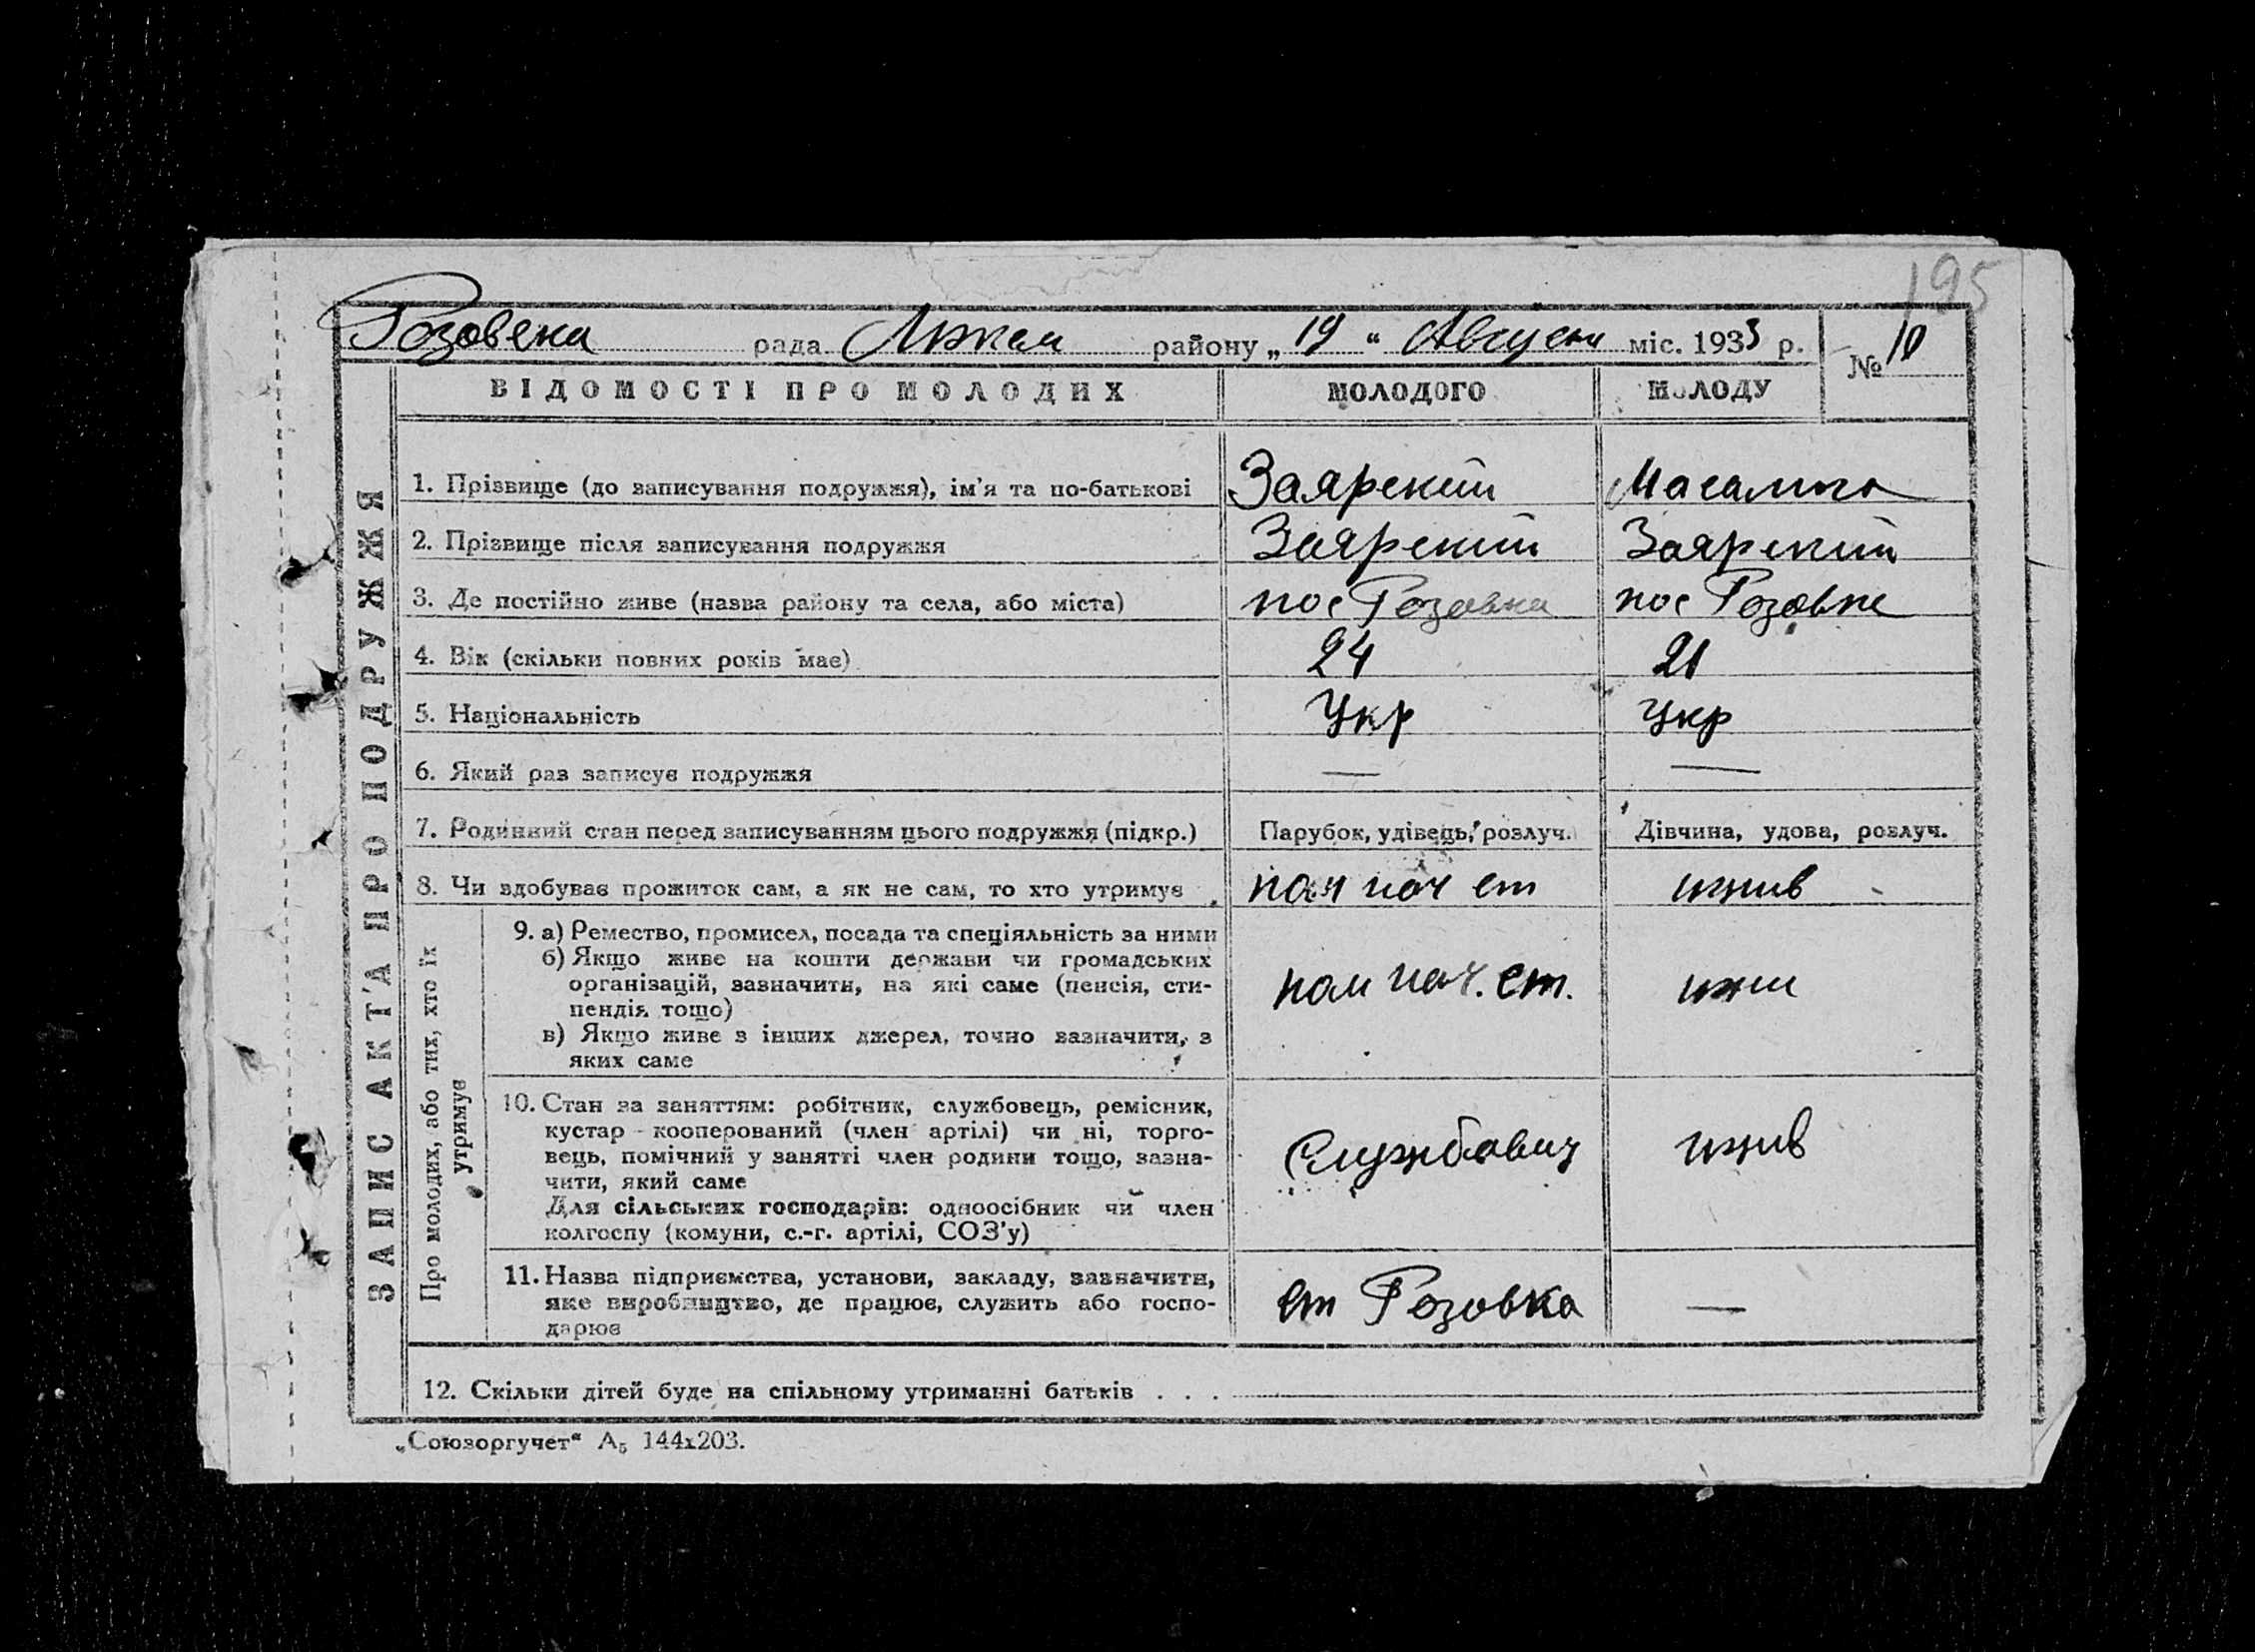 195
Розовска рада Люксем району „19“ Августа міс. 1933 р. № 10
ЗАПИС АКТ'А ПРО ПОДРУЖЖЯ
ВІДОМОСТІ ПРО МОЛОДИХ МОЛОДОГО МОЛОДУ
1. Прізвище (до записування подружжя), ім'я та по-батькові Заярский
2. Прізвище після записування подружжя Заярский Заярский
3. Де постійно живе (назва району та села, або міста) пос Розовка пос Розовка
4. Вік (скільки повних років має) 24 21
5. Національність Укр Укр
6. Який раз записує подружжя — —
7. Родинний стан перед записуванням цього подружжя (підкр.) Парубок, удівець, розлуч. Дівчина, удова, розлуч.
8. Чи здобуває прожиток сам, а як не сам, то хто утримує пом нач ст ижив
Про молодих, або тих, хто їх
утримує
9. а) Ремество, промисел, посада та спеціяльність за ними
б) Якщо живе на кошти держави чи громадських
організацій, зазначити, на які саме (пенсія, сти-
пендія тощо)
в) Якщо живе з інших джерел, точно зазначити, з
яких саме
пом нач. ст.
10. Стан за заняттям: робітник, службовець, ремісник,
кустар - кооперований (член артілі) чи ні, торго-
вець, помічний у занятті член родини тощо, зазна-
чити, який саме
Для сільських господарів: одноосібник чи член
колгоспу (комуни, с.-г. артілі, СОЗ'у)
Службавич ижив
11. Назва підприємства, установи, закладу, зазначити,
яке виробництво, де працює, служить або госпо-
дарює
ст Розовка —
12. Скільки дітей буде на спільному утриманні батьків . . .
„Союзоргучет“ А₅ 144х203.